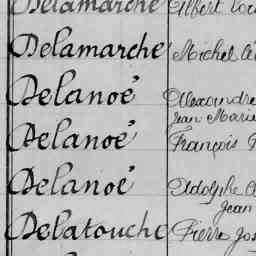 Delamarche Albert
Delamarche Michel
Delanoé Alexandre
Jean Marie
Delanoé François
Delanoé Adolphe
Jean
Delatouche Pierre Jos